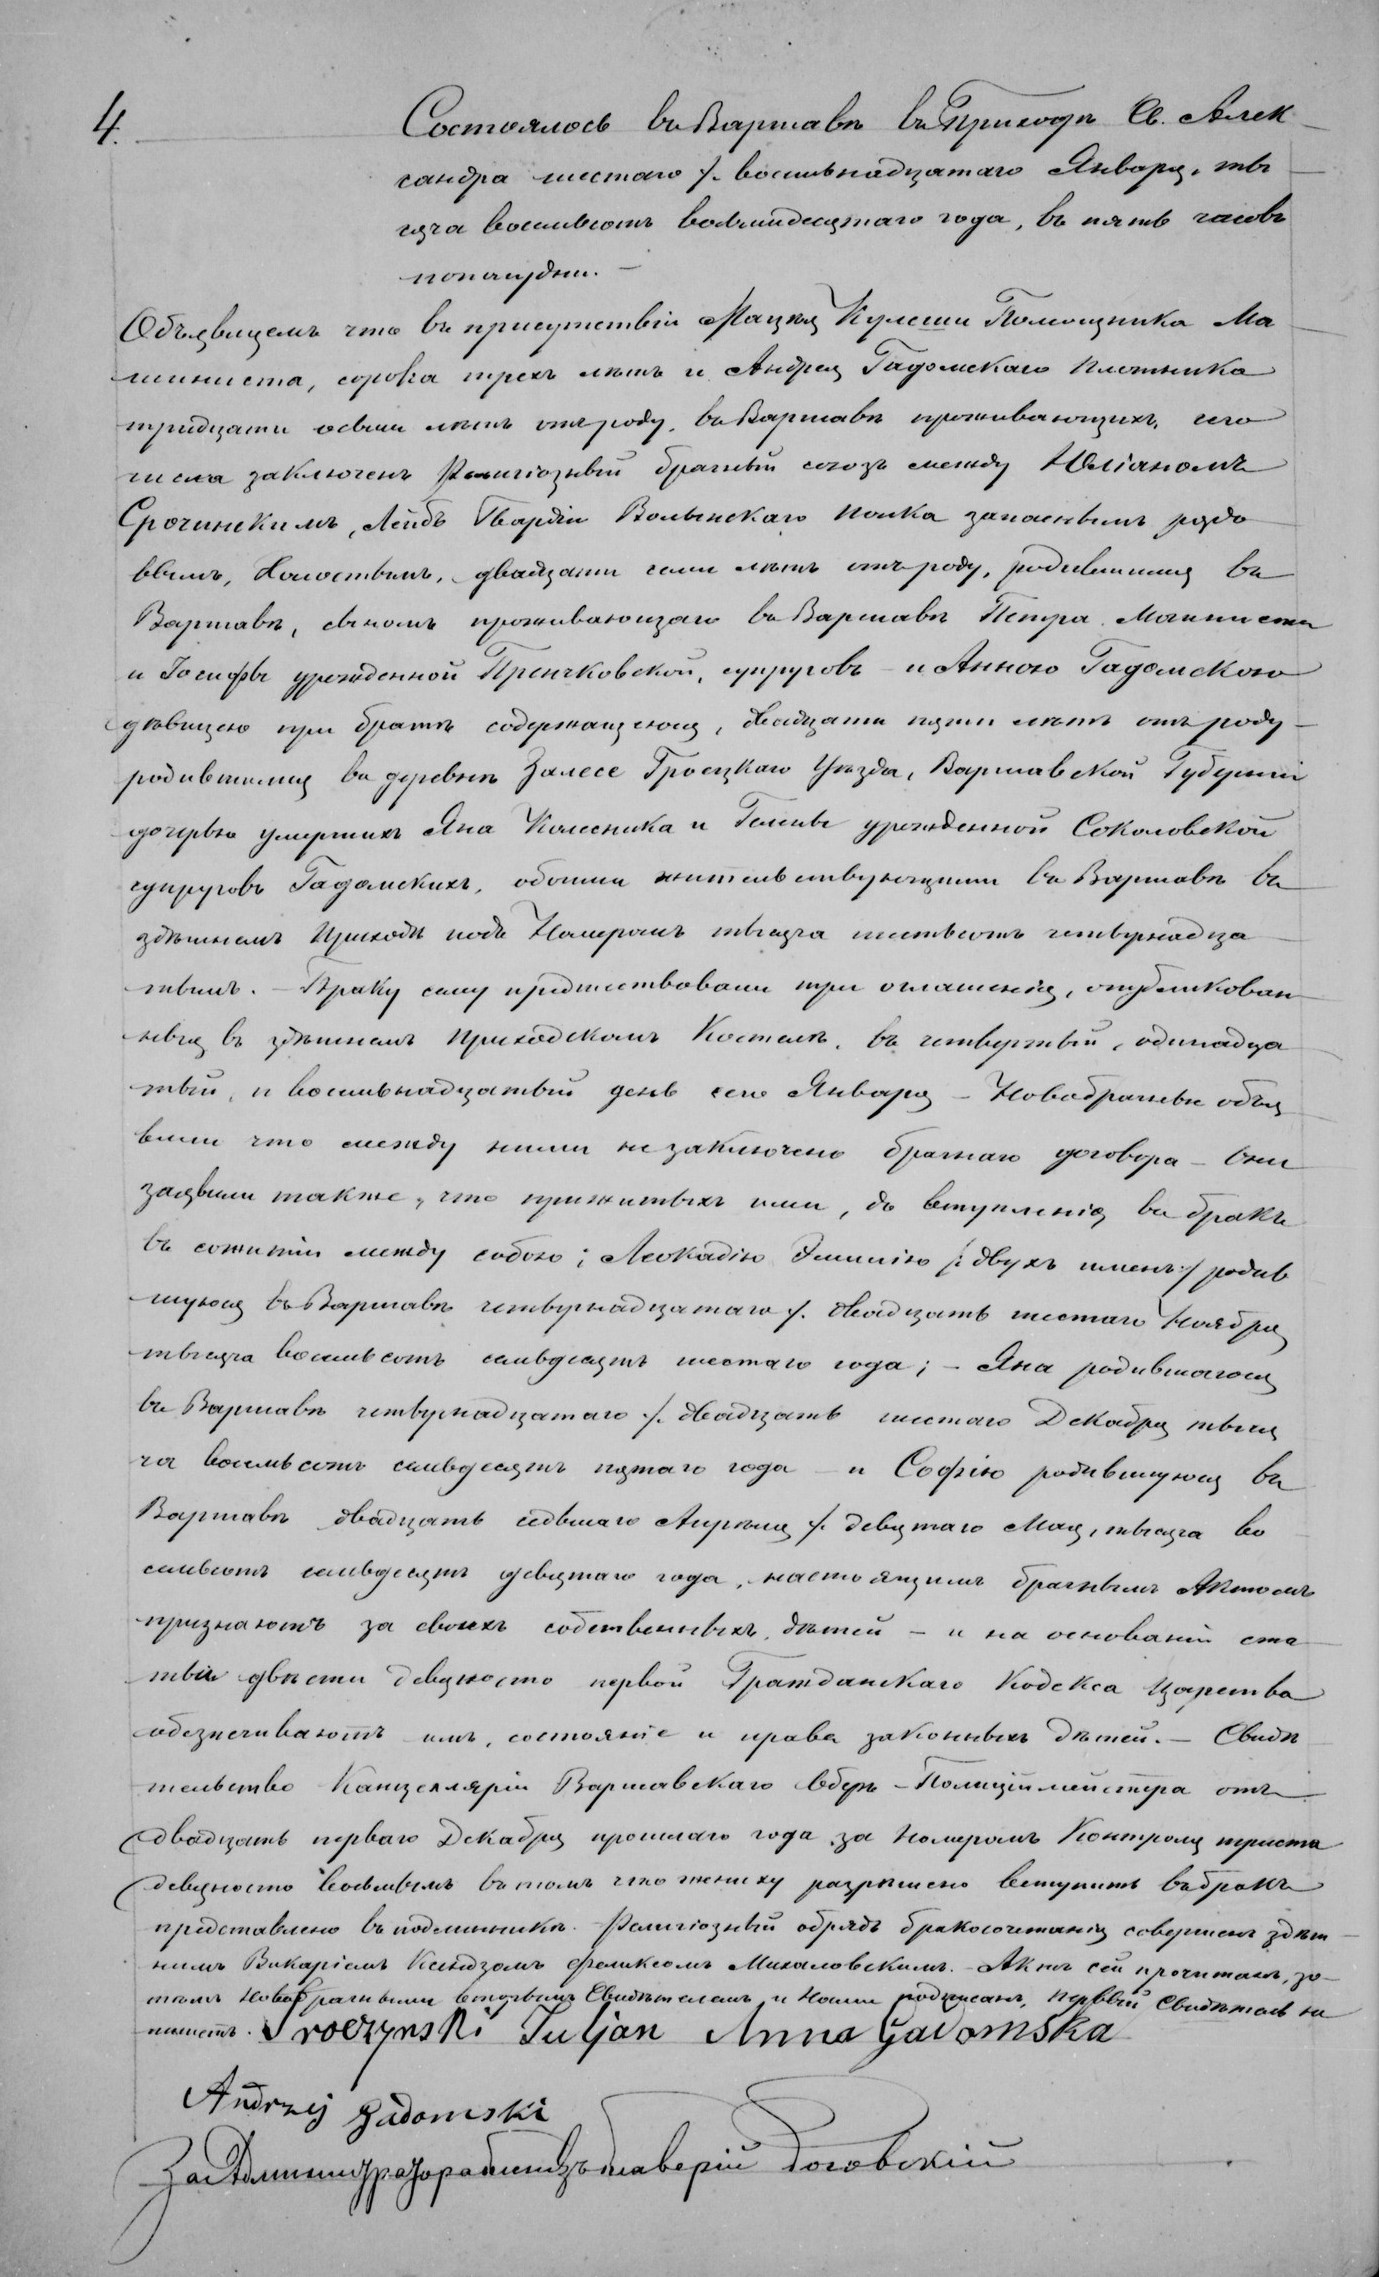 4.
Состоялось въ Варшавѣ въ Приходѣ Св. Алек
сандра шестаго /. восемьнадцатаго Января, ты
сяча восемьсотъ восьмидесятаго года, въ пять часовъ
пополудни. —
Объявляемъ что въ присутствіи Мацѣя Кулеши Помощника Ма
шиниста, сорока трехъ лѣтъ и Андрея Гадомскаго Плотника
тридцати осьми лѣтъ отъ роду, въ Варшавѣ проживающихъ, сего
числа заключенъ Религіозный брачный союзъ между Юліаномъ
Срочинскимъ, Лейбъ Гвардіи Волынскаго полка запаснымъ рядо
вымъ, Холостымъ, двадцати семи лѣтъ отъ роду, родившимся въ
Варшавѣ, сыномъ проживающаго въ Варшавѣ Петра Машинисты
и Іосифы урожденной Пренчковской, супруговъ — и Анною Гадомскою
дѣвицею при братѣ содержащеюся, двадцати пяти лѣтъ отъ роду —
родившимся въ деревнѣ Залесе Гроецкаго Уѣзда, Варшавской Губерніи
дочерью умершихъ Яна Колесника и Геленъ урожденной Соколовской
супруговъ Гадомскихъ, обоими жительствующими въ Варшавѣ въ
здѣшнемъ Приходѣ подъ Номеромъ тысяча шестьсотъ четырнадца
тымъ. — Браку сему предшествовали три оглашенія, опубликован
ныя въ здѣшнемъ Приходскомъ Костелѣ, въ четвертый, одинадца
тый, и восемьнадцатый день сего Января — Новобрачные объя
вили что между ними не заключено брачнаго договора — Они
заявили также, что прижитыхъ ими, до вступленія въ бракъ
въ сожитіи между собою; Леокадію Эмилію /: двухъ именъ :/ родив
шуюся въ Варшавѣ четырнадцатаго /. двадцать шестаго Ноября
тысяча восемьсотъ семьдесятъ шестаго года; — Яна родившагося
въ Варшавѣ четырнадцатаго /. двадцать шестаго Декабря тыся
ча восемьсотъ семьдесятъ пятаго года — и Софію родившуюся въ
Варшавѣ двадцать седьмаго Апрѣля /. девятаго Мая, тысяча во
семьсотъ семьдесятъ девятаго года, настоящимъ брачнымъ Актомъ
признаютъ за своихъ собственныхъ дѣтей — и на основаніи ста
тьи двѣсти девяносто первой Гражданскаго Кодекса Царства
обезпечиваютъ имъ, состояніе и права законныхъ дѣтей. — Свидѣ
тельство Канцелляріи Варшавскаго Оберъ-Полиціймейстера отъ
двадцать перваго Декабря прошлаго года за Номеромъ Контроля триста
девяносто восьмымъ въ томъ что жениху разрѣшено вступить въ бракъ
представлено въ подлинникѣ. Религіозный обрядъ бракосочетанія совершенъ здѣш
нимъ Викаріемъ Ксендзомъ Феликсомъ Михаловскимъ. — Актъ сей прочитанъ, за
тѣмъ Новобрачными вторымъ Свидѣтелемъ и Нами подписанъ, первый Свидѣтель не
пишетъ. Sroczynski Juljan Anna Gadomska
Andrzej Gadomski
За Администратора Ксаверій Роговскій